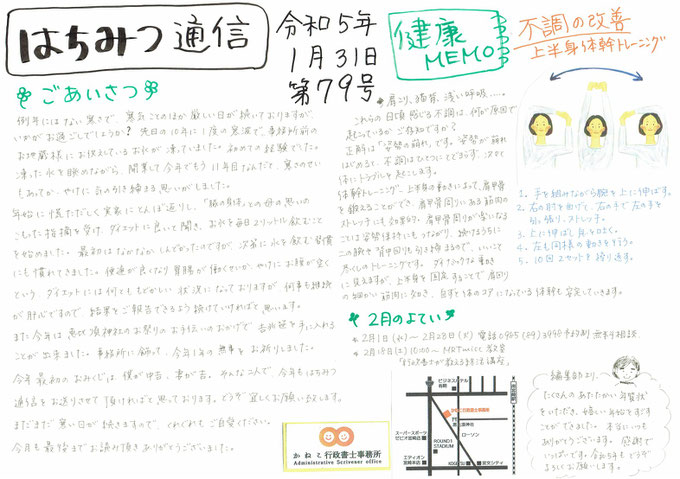 はちみつ通信
令和5年
1月31日
第79号
ごあいさつ
例年にはない寒さで、寒さことのほか厳しい日が続いておりますが、
いかがお過ごしでしょうか？先日の10年に1度の寒波で、事務所前の
お地蔵様にお供えしているお水が凍っていました。初めての経験でした。
凍った氷を眺めながら、開業して今年でもう11年目なんだと、寒さのせい
もあってか、やけに身の引き締まる思いがしました。
年始に慌ただしく実家にとんぼ返りし、「
との母の思いの
こもった指摘を受け、ダイエットに良いと聞き、お水を毎日2リットル飲むこと
を始めました。最初はなかなかしんどかったのですが、次第に水を飲む習慣
にも慣れてきました。便通が良くなり胃腸が働くせいか、やけにお腹が空く
という、ダイエットには何とももどかしい状況になっておりますが、何事も継続
が肝心ですので、結果をご報告できるよう続けていければと思います。
また今年は恵比須神社のお祭りのお手伝いのおかげで、吉兆笹を手に入れる
ことが出来ました。事務所に飾って、今年1年の無事をお祈りしました。
今年最初のおみくじは、僕が中吉、妻が吉。そんな二人で、今年もはちみつ
通信をお送りさせて頂ければと思っております。どうぞ宜しくお願い致します。
まだまだ寒い日が続きますので、くれぐれもご自愛ください。
今月も最後までお読み頂きありがとうございました。
かねこ行政書士事務所
Administrative Scrivener office
健康
MEMO
不調の改善
上半身体幹トレーニング
肩こり、猫背、浅い呼吸……。
これらの日頃感じる不調は、何が原因で
起こっているかご存知ですか？
正解は「姿勢の崩れ」です。姿勢が崩れ
はじめると、不調はひとつにとどまらず、次々と
体にトラブルを起こします。
体幹トレーニング、上半身の動きによって、肩甲骨
を鍛えることができ、肩甲骨周りにある筋肉の
ストレッチにも効果的？。肩甲骨周りが整になる
ことは姿勢保持にもつながり、続けるうちに
二の腕や背中回りも引き締まるので、いいこと
尽くしのトレーニングです。ダイナミックな動き
に見えますが、上半身を固定することで肩回り
の細かい筋肉に効き、自ずと体のコアになっている体幹も安定していきます。
1. 手を組みながら腕を上に伸ばす。
2. 右の肘を曲げて、右の手で左の手を
引っ張り、ストレッチ。
3. 上に伸ばし直を向く。
4. 左も同様の動きをする。
5. 10回2セットを繰り返す。
2月のよてい
2月1日(水)～2月28日(火) 電話0985(89)3990 予約制 無料相談
2月18日(土) 10:00～ MRTmicc教室
「行政書士が教える終活講座」
ビジネスホテル
有明
かねこ行政書士事務所
ローソン
スーパースポーツ
ゼビオ宮崎店
ROUND1
STADIUM
エディオン
宮崎本店
KOGETSU
東交シティ
編集部より、
たくさんのあたたかい年賀状
をいただき、嬉しい年始をすごす
ことができました。本当にいつも
ありがとうございます。感謝で
いっぱいです。令和5年もどうぞ
よろしくお願いします。